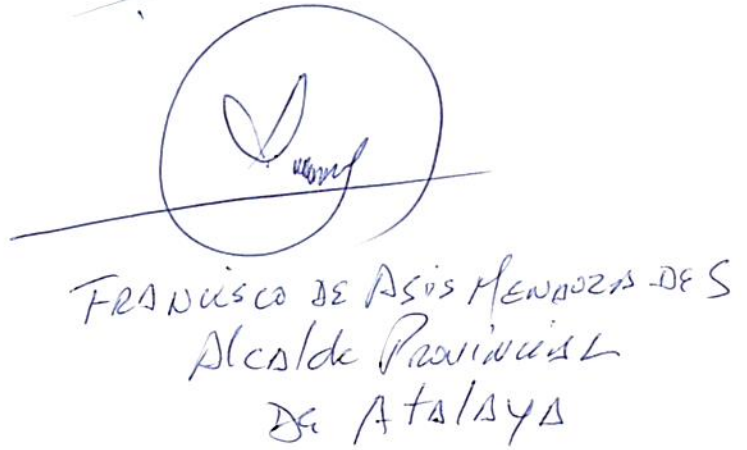 FRANCISCO DE ASIS MENDOZA DE S
Alcalde Provincial
DE Atalaya